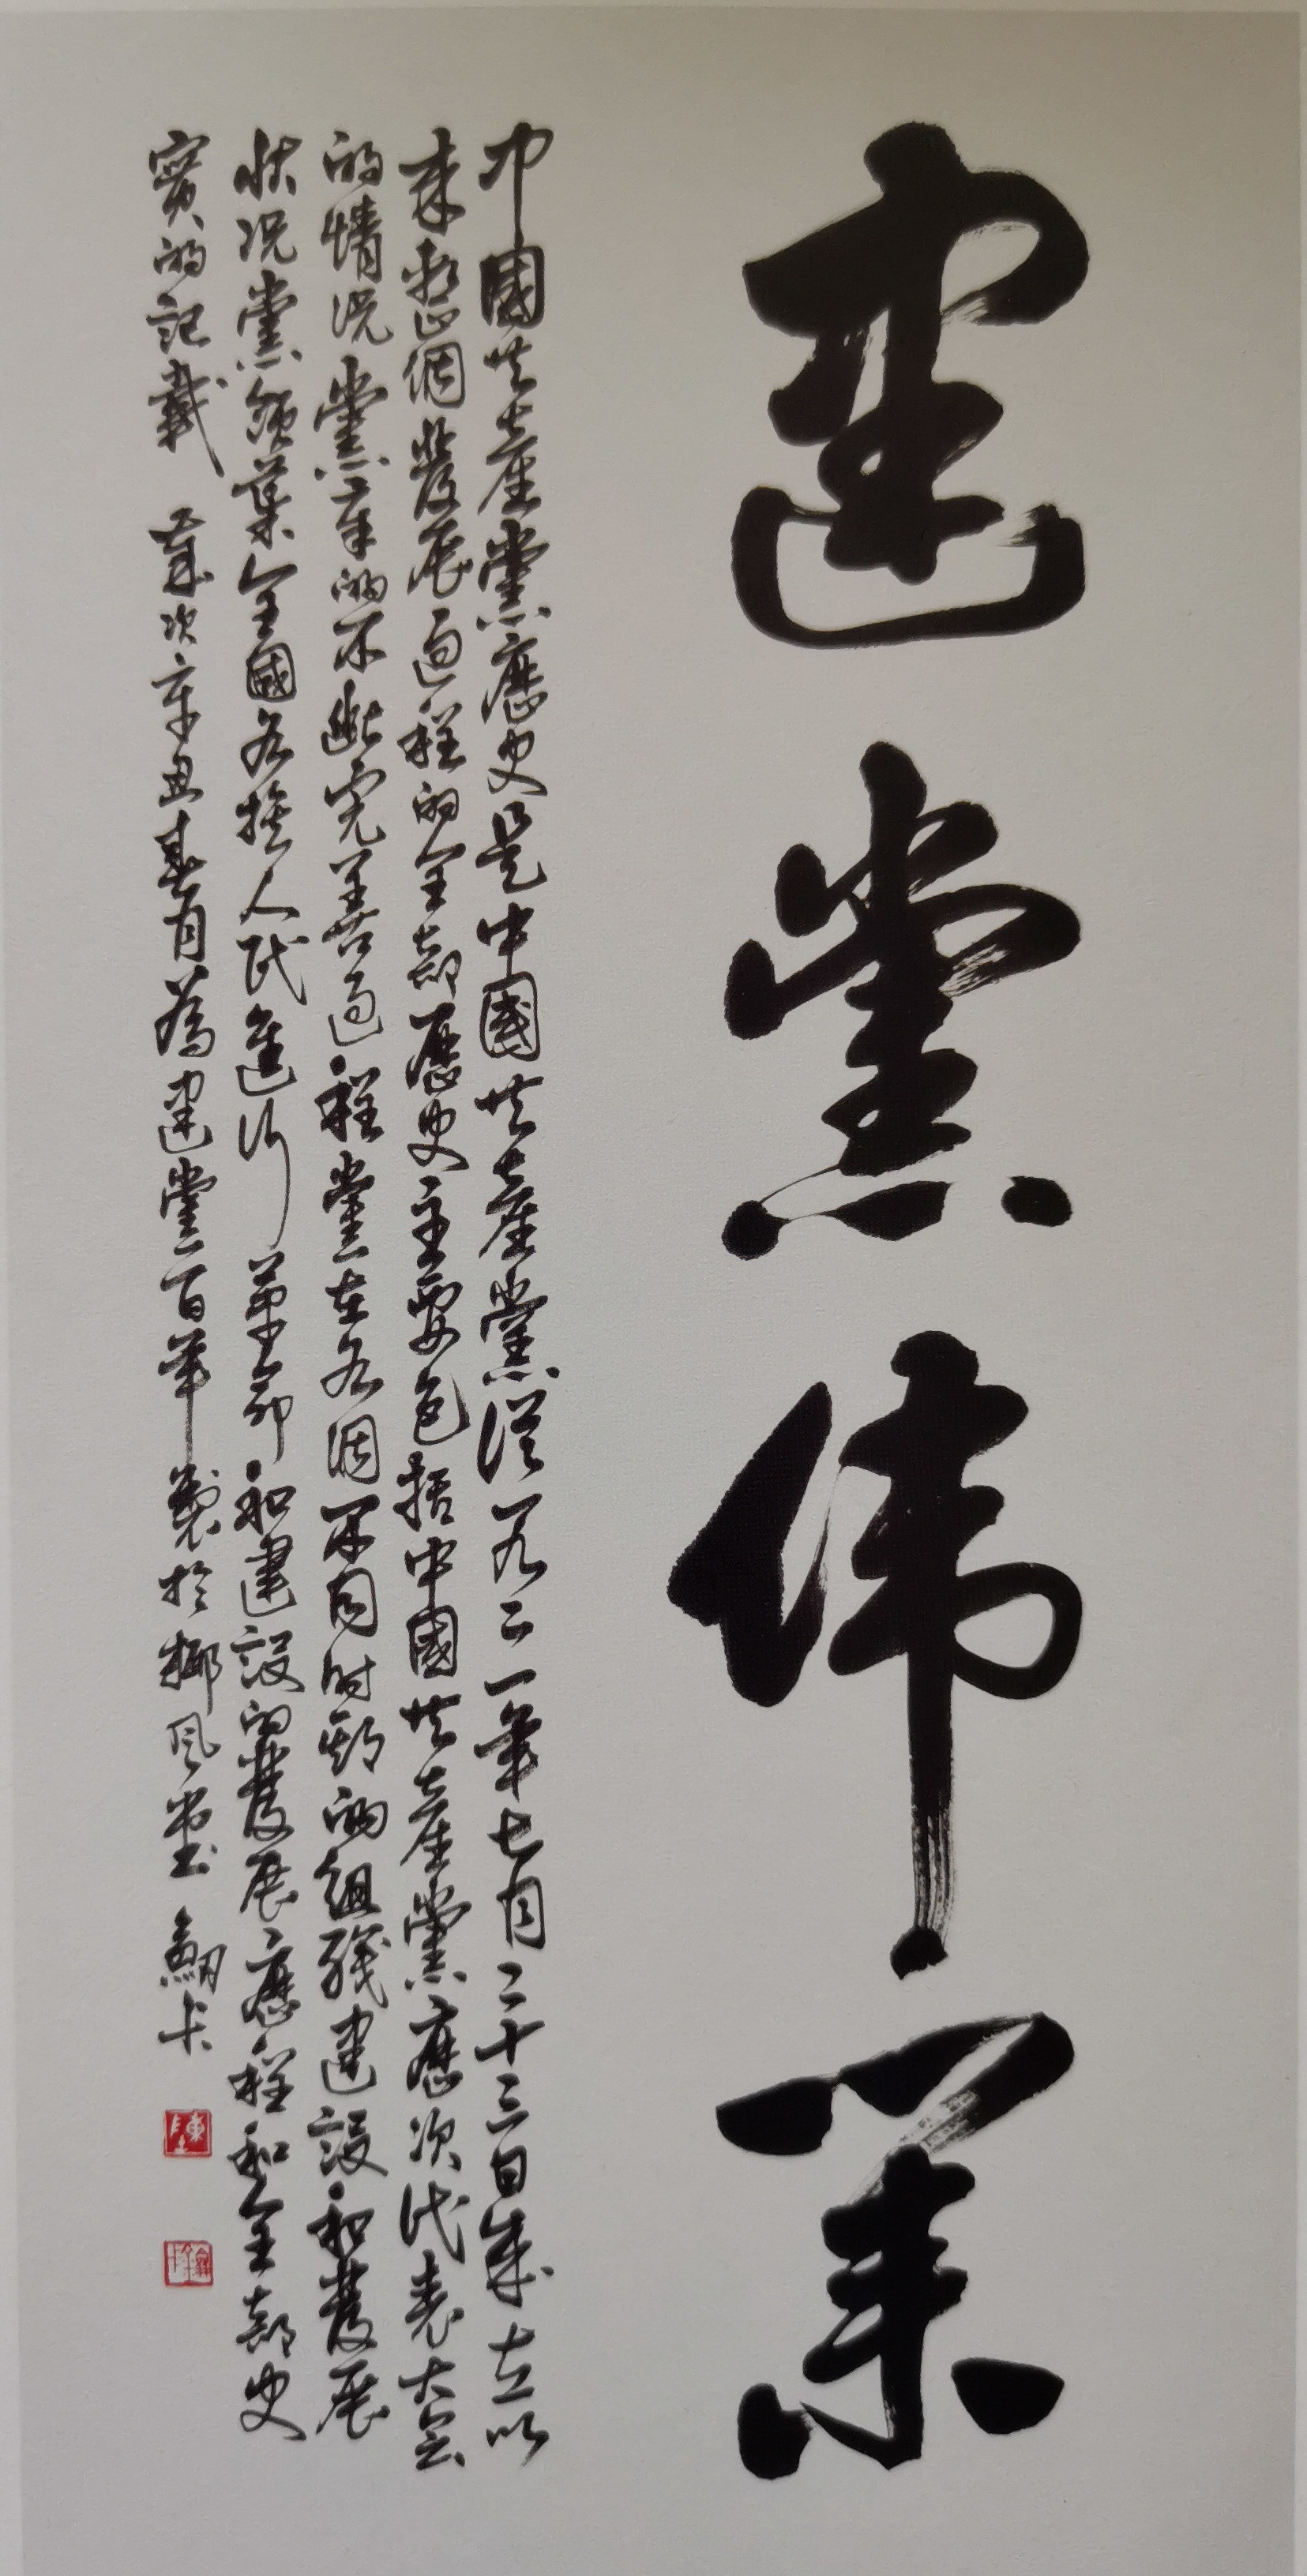 建黨伟業
中國共產黨歷史是中國共產黨從一九二一年七月二十三日成立以
来整個發展過程的全部歷史主要包括中國共產黨歷次代表大会
的情况黨章的不断完善過程黨在各個不同时期的组织建設和發展
状况黨領導全國各族人民進行革命和建設的發展歷程和全部史
實的記載 歲次辛丑春月為建黨百年製於椰风堂 卡